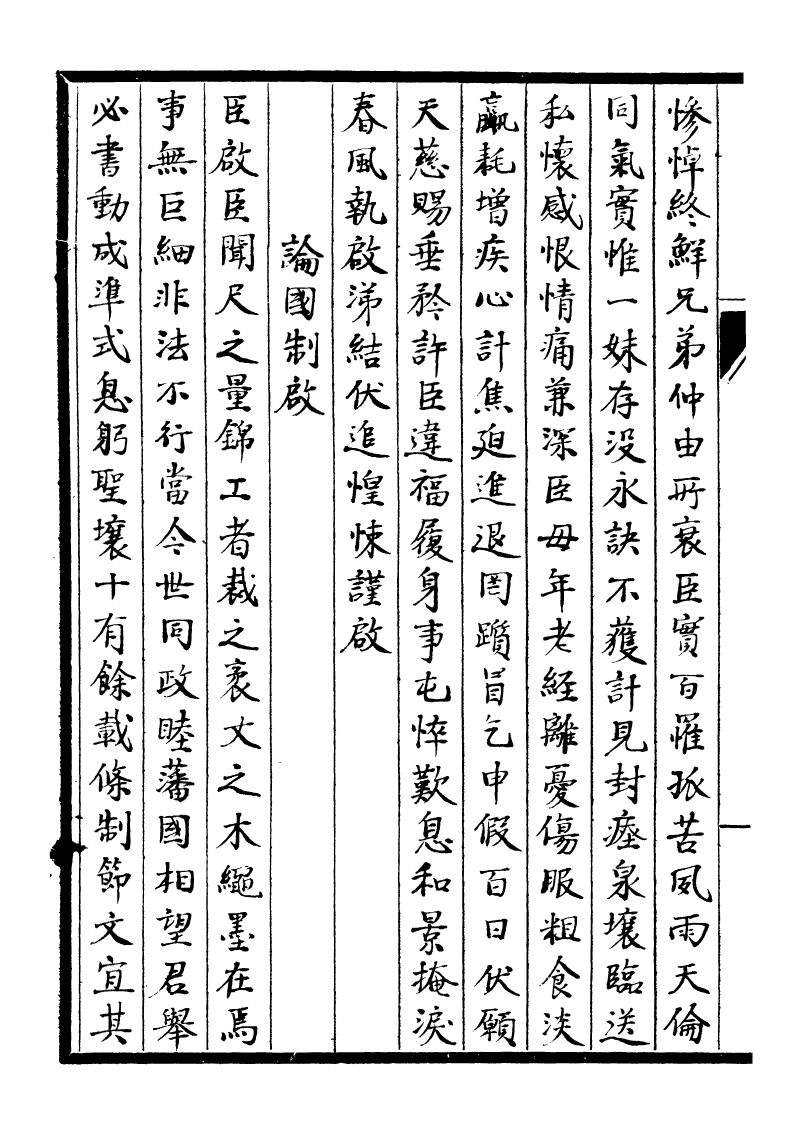 慘悼終鮮兄弟仲由所衰臣實百罹孤苦風雨天倫
同氣實惟一妹存没永訣不獲計見封瘞泉壤臨送
私懷感恨情痛兼深臣母年老經離憂傷服粗食淡
羸耗增疾心計焦廹進退罔躓冒乞申假百日伏願
天慈賜垂矜許臣違福履身事屯悴歎息和景掩淚
春風執啟涕結伏追惶悚謹啟
論國制啟
臣啟臣聞尺之量錦工者裁之袤丈之木繩墨在焉
事無巨細非法不行當今世同政睦藩國相望君舉
必書動成準式息躬聖壤十有餘載條制節文宜其